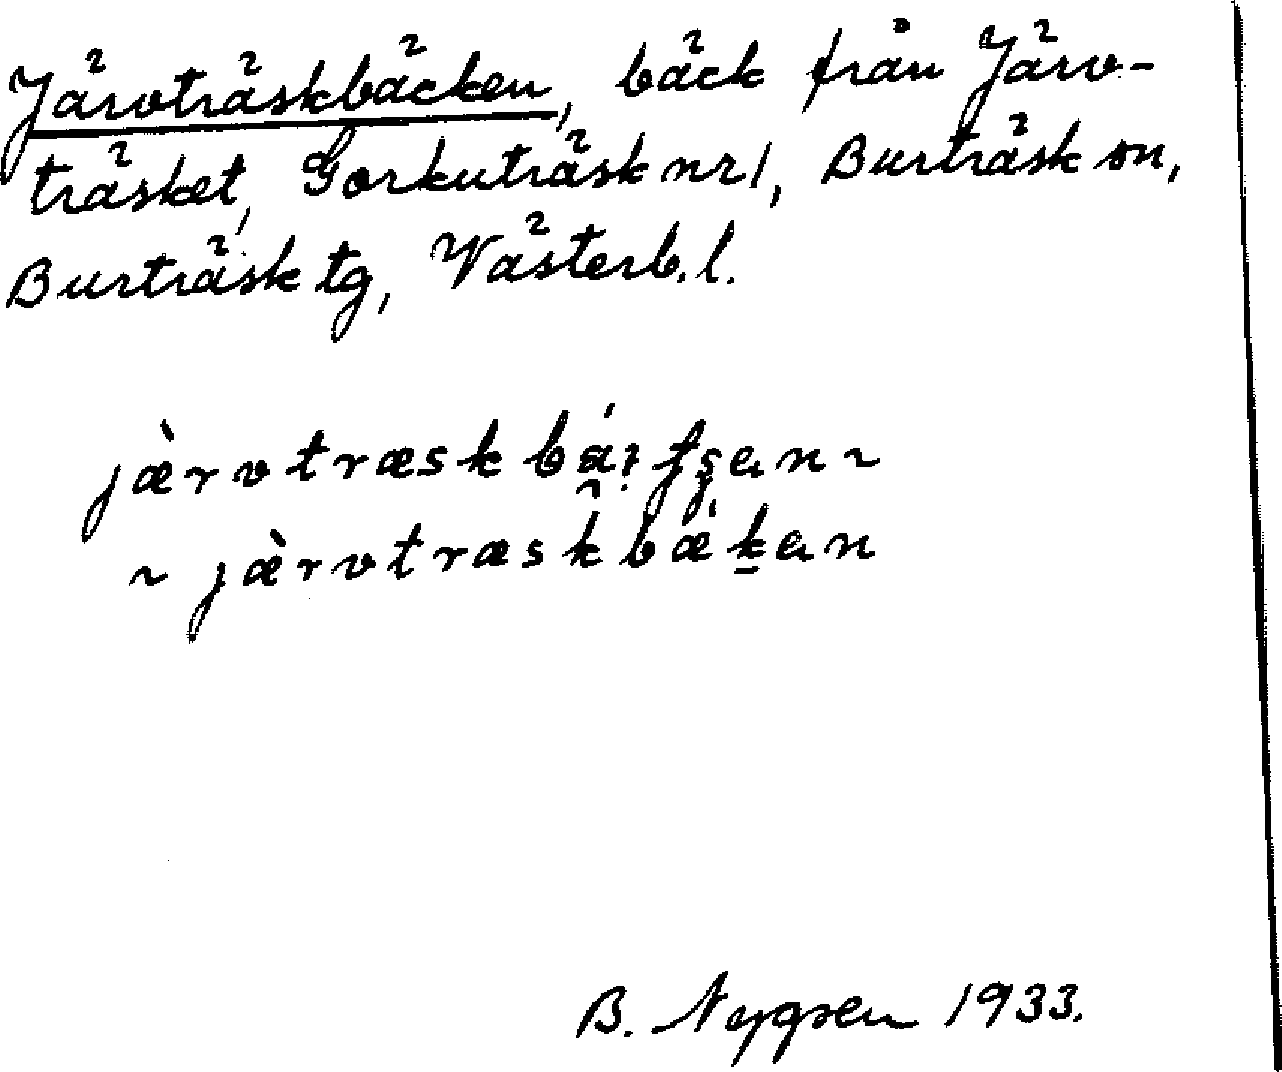 Järvträskbäcken, bäck från Järv-
träsket, Gorkuträsk nr 1, Burträsk sn,
Burträsk tg, Västerb. l.
~ jæ̀rvtræskbǽkan
B. Nygren 1933.